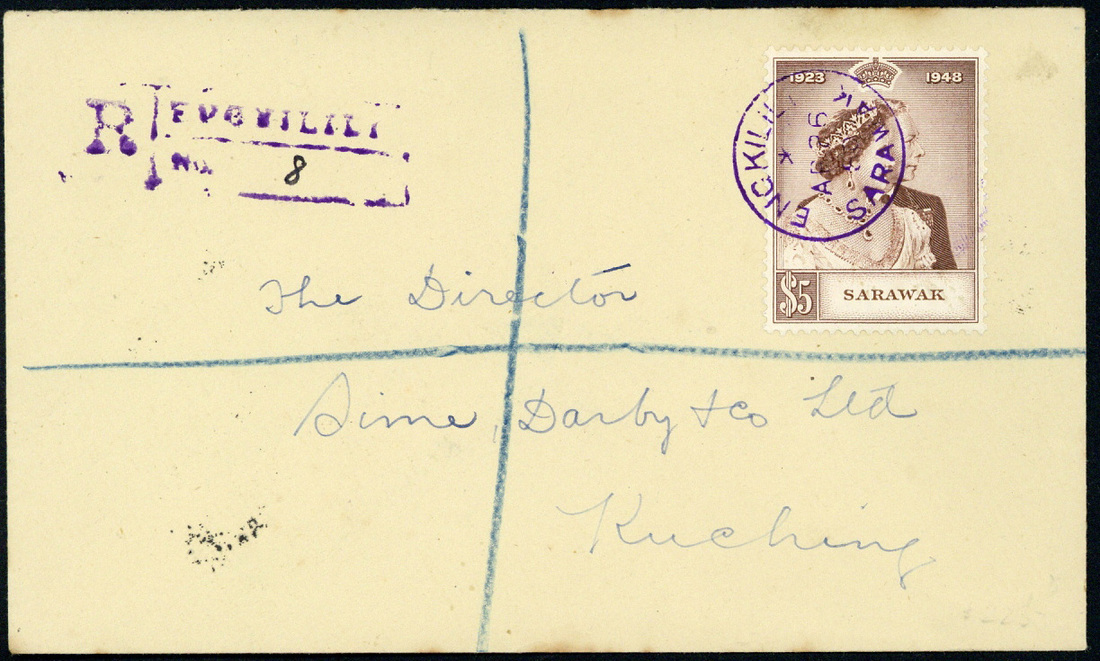 R ENGKILILI
No. 8
1923 1948
ENGKILILI
SARAWAK
$5 SARAWAK
The Director
Sime, Darby & Co Ltd
Kuching